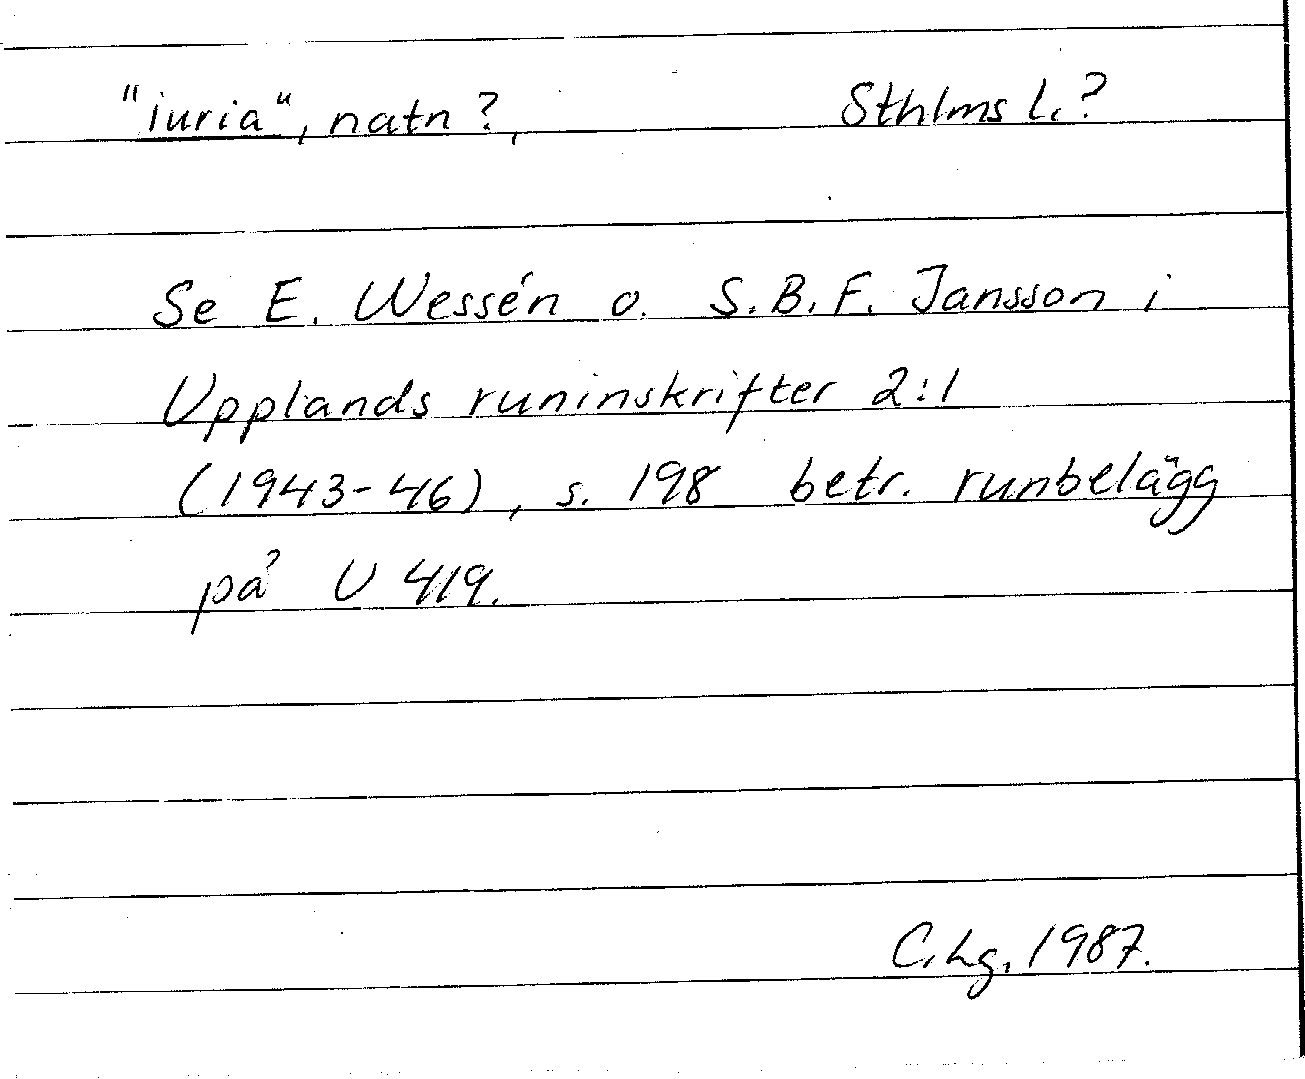 "iuria", natn?, Sthlms l.?
Se E. Wessén o. S.B.F. Jansson i
Upplands runinskrifter 2:1
(1943-46), s. 198 betr. runbelägg
på U 419.
C.Lg. 1987.